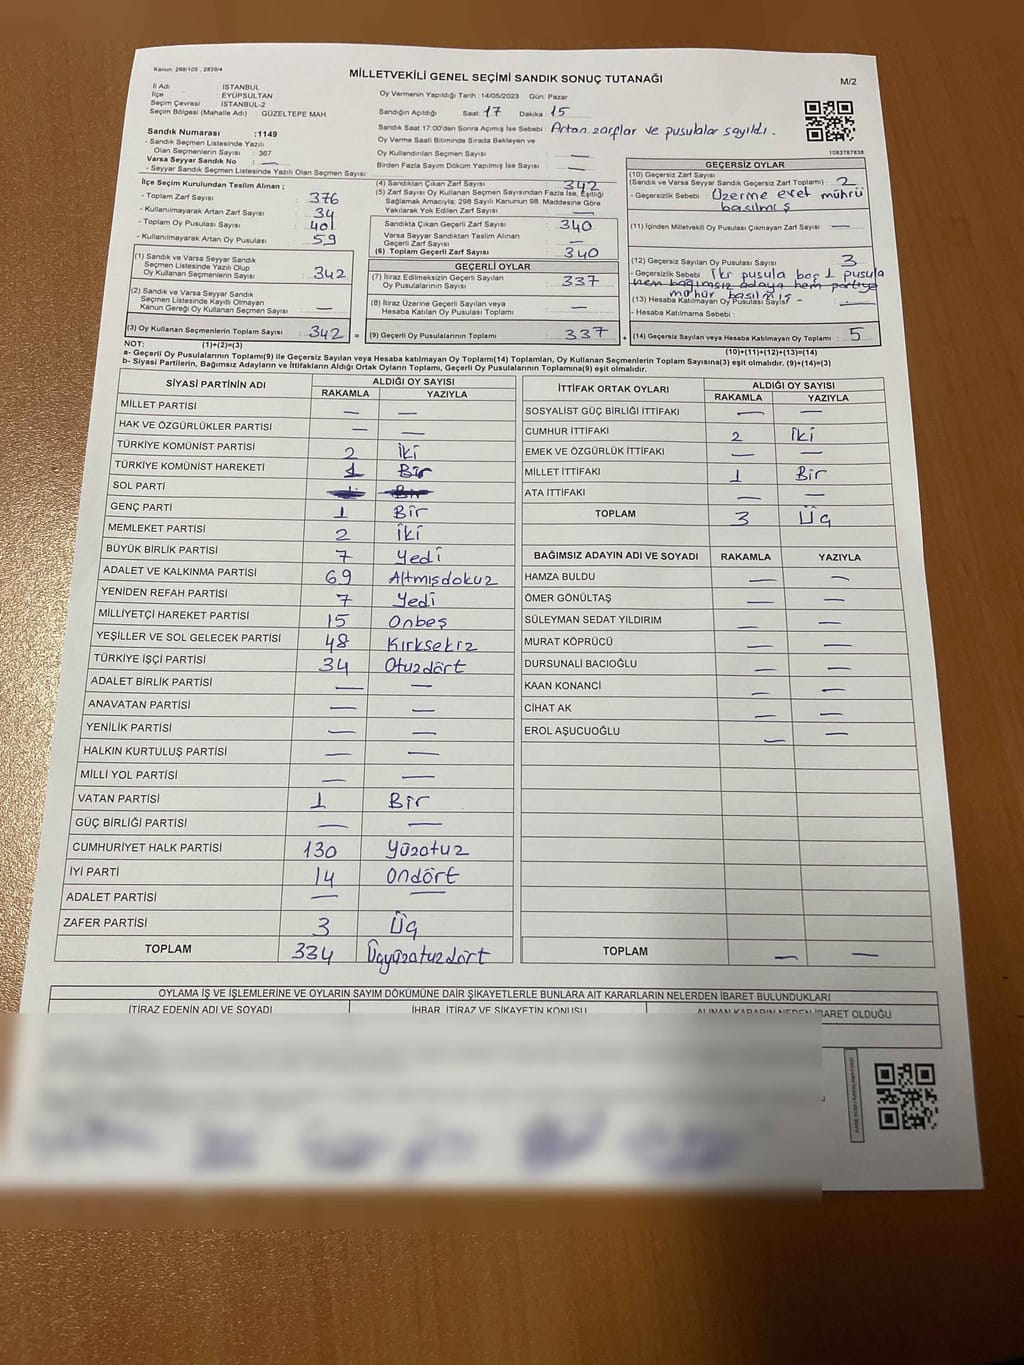 Kanun: 298/105 , 2839/4
MİLLETVEKİLİ GENEL SEÇİMİ SANDIK SONUÇ TUTANAĞI
M/2
İl Adı : İSTANBUL
İlçe : EYÜPSULTAN
Seçim Çevresi : İSTANBUL-2
Seçim Bölgesi (Mahalle Adı) : GÜZELTEPE MAH
Oy Vermenin Yapıldığı Tarih :14/05/2023 Gün: Pazar
Sandığın Açıldığı Saat: 17 Dakika : 15
Sandık Saat 17:00'den Sonra Açımış İse Sebebi : Artan zarflar ve pusulalar sayıldı.
Oy Verme Saati Bitiminde Sırada Bekleyen ve
Oy Kullandırılan Seçmen Sayısı : —
Birden Fazla Sayım Döküm Yapılmış İse Sayısı : —
1083787838
Sandık Numarası :1149
- Sandık Seçmen Listesinde Yazılı
Olan Seçmenlerin Sayısı : 367
Varsa Seyyar Sandık No : —
- Seyyar Sandık Seçmen Listesinde Yazılı Olan Seçmen Sayısı:
İlçe Seçim Kurulundan Teslim Alınan ;
- Toplam Zarf Sayısı : 376
- Kullanılmayarak Artan Zarf Sayısı : 34
- Toplam Oy Pusulası Sayısı : 401
- Kullanılmayarak Artan Oy Pusulası : 59
(1) Sandık ve Varsa Seyyar Sandık
Seçmen Listesinde Yazılı Olup
Oy Kullanan Seçmenlerin Sayısı : 342
(2) Sandık ve Varsa Seyyar Sandık
Seçmen Listesinde Kayıtlı Olmayan
Kanun Gereği Oy Kullanan Seçmen Sayısı : —
(3) Oy Kullanan Seçmenlerin Toplam Sayısı : 342 =
(4) Sandıktan Çıkan Zarf Sayısı : 342
(5) Zarf Sayısı Oy Kullanan Seçmen Sayısından Fazla İse, Eşitliği
Sağlamak Amacıyla; 298 Sayılı Kanunun 98. Maddesine Göre
Yakılarak Yok Edilen Zarf Sayısı : —
Sandıkta Çıkan Geçerli Zarf Sayısı : 340
Varsa Seyyar Sandıktan Teslim Alınan
Geçerli Zarf Sayısı : —
(6) Toplam Geçerli Zarf Sayısı : 340
GEÇERLİ OYLAR
(7) İtiraz Edilmeksizin Geçerli Sayılan
Oy Pusulalarının Toplamı : 337
(8) İtiraz Üzerine Geçerli Sayılan veya
Hesaba Katılan Oy Pusulası Toplamı : —
(9) Geçerli Oy Pusulalarının Toplamı : 337 +
GEÇERSİZ OYLAR
(10) Geçersiz Zarf Sayısı
(Sandık ve Varsa Seyyar Sandık Geçersiz Zarf Toplamı) : 2
- Geçersizlik Sebebi : Üzerine evet mührü
basılmış
(11) İçinden Milletvekili Oy Pusulası Çıkmayan Zarf Sayısı : —
(12) Geçersiz Sayılan Oy Pusulası Sayısı : 3
- Geçersizlik Sebebi : İki pusula boş 1 pusula
hem bağımsız adaya hem partiye
mühür basılmış -
(13) Hesaba Katılmayan Oy Pusulası Sayısı : —
- Hesaba Katılmama Sebebi :
(14) Geçersiz Sayılan veya Hesaba Katılmayan Oy Toplamı : 5
NOT: (1)+(2)=(3)
(10)+(11)+(12)+(13)=(14)
a- Geçerli Oy Pusulalarının Toplamı(9) ile Geçersiz Sayılan veya Hesaba katılmayan Oy Toplamı(14) Toplamları, Oy Kullanan Seçmenlerin Toplam Sayısına(3) eşit olmalıdır. (9)+(14)=(3)
b- Siyasi Partilerin, Bağımsız Adayların ve İttifakların Aldığı Ortak Oyların Toplamı, Geçerli Oy Pusulalarının Toplamına(9) eşit olmalıdır.
SİYASİ PARTİNİN ADI ALDIĞI OY SAYISI
RAKAMLA YAZIYLA
MİLLET PARTİSİ — —
HAK VE ÖZGÜRLÜKLER PARTİSİ — —
TÜRKİYE KOMÜNİST PARTİSİ 2 İki
TÜRKİYE KOMÜNİST HAREKETİ 1 Bir
SOL PARTİ
GENÇ PARTİ 1 Bir
MEMLEKET PARTİSİ 2 İki
BÜYÜK BİRLİK PARTİSİ 7 Yedi
ADALET VE KALKINMA PARTİSİ 69 Altmışdokuz
YENİDEN REFAH PARTİSİ 7 Yedi
MİLLİYETÇİ HAREKET PARTİSİ 15 Onbeş
YEŞİLLER VE SOL GELECEK PARTİSİ 48 Kırksekiz
TÜRKİYE İŞÇİ PARTİSİ 34 Otuzdört
ADALET BİRLİK PARTİSİ — —
ANAVATAN PARTİSİ — —
YENİLİK PARTİSİ — —
HALKIN KURTULUŞ PARTİSİ — —
MİLLİ YOL PARTİSİ — —
VATAN PARTİSİ 1 Bir
GÜÇ BİRLİĞİ PARTİSİ — —
CUMHURİYET HALK PARTİSİ 130 Yüzotuz
İYİ PARTİ 14 Ondört
ADALET PARTİSİ — —
ZAFER PARTİSİ 3 Üç
TOPLAM 334 Üçyüzotuzdört
İTTİFAK ORTAK OYLARI ALDIĞI OY SAYISI
RAKAMLA YAZIYLA
SOSYALİST GÜÇ BİRLİĞİ İTTİFAKI — —
CUMHUR İTTİFAKI 2 İki
EMEK VE ÖZGÜRLÜK İTTİFAKI — —
MİLLET İTTİFAKI 1 Bir
ATA İTTİFAKI — —
TOPLAM 3 Üç
BAĞIMSIZ ADAYIN ADI VE SOYADI RAKAMLA YAZIYLA
HAMZA BULDU — —
ÖMER GÖNÜLTAŞ — —
SÜLEYMAN SEDAT YILDIRIM — —
MURAT KÖPRÜCÜ — —
DURSUNALİ BACIOĞLU — —
KAAN KONANCİ — —
CİHAT AK — —
EROL AŞUCUOĞLU — —
TOPLAM — —
OYLAMA İŞ VE İŞLEMLERİNE VE OYLARIN SAYIM DÖKÜMÜNE DAİR ŞİKAYETLERLE BUNLARA AİT KARARLARIN NELERDEN İBARET BULUNDUKLARI
İTİRAZ EDENİN ADI VE SOYADI İHBAR, İTİRAZ VE ŞİKAYETİN KONUSU ALINAN KARARIN NEDEN İBARET OLDUĞU